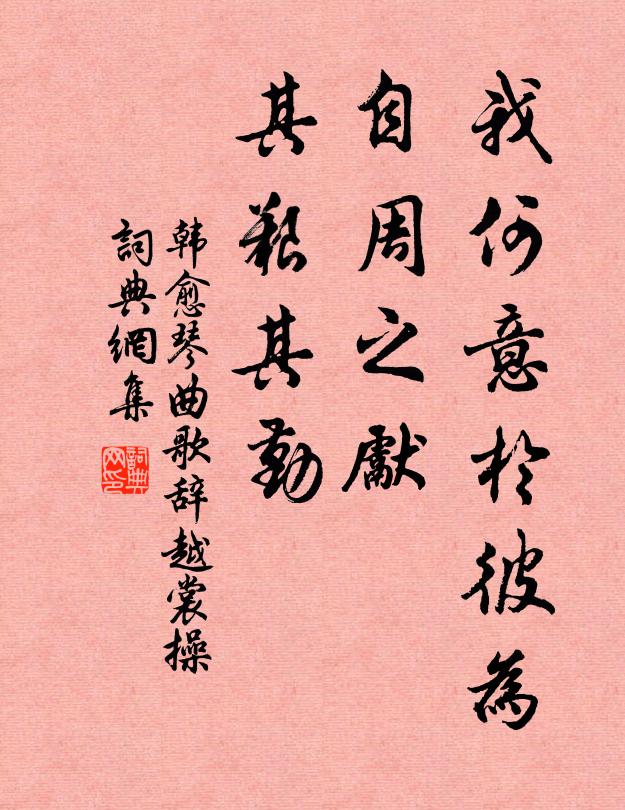 我何意於彼為
自周之獻
其艱其勤
韩愈琴曲歌辞越裳操
詞典網集
詞典网印